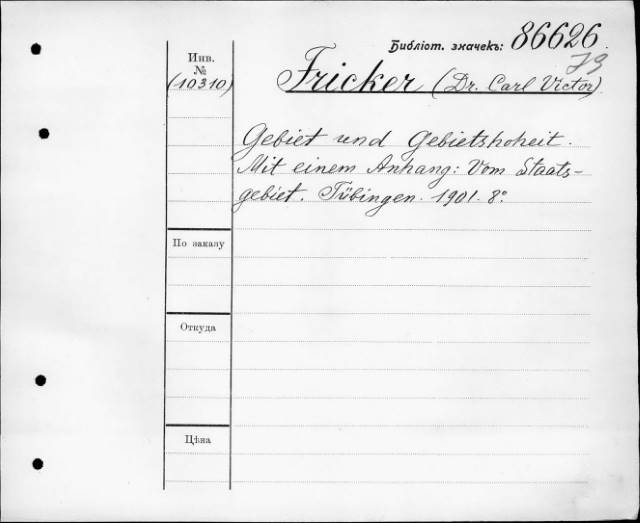 Библіот. значекъ: 86626
73
Инв.
№
(10310)
Fricker (Dr. Carl Victor)
Gebiet und Gebietshoheit.
Mit einem Anhang: Vom Staats-
gebiet. Tübingen. 1901. 8°
По заказу
Откуда
Цѣна